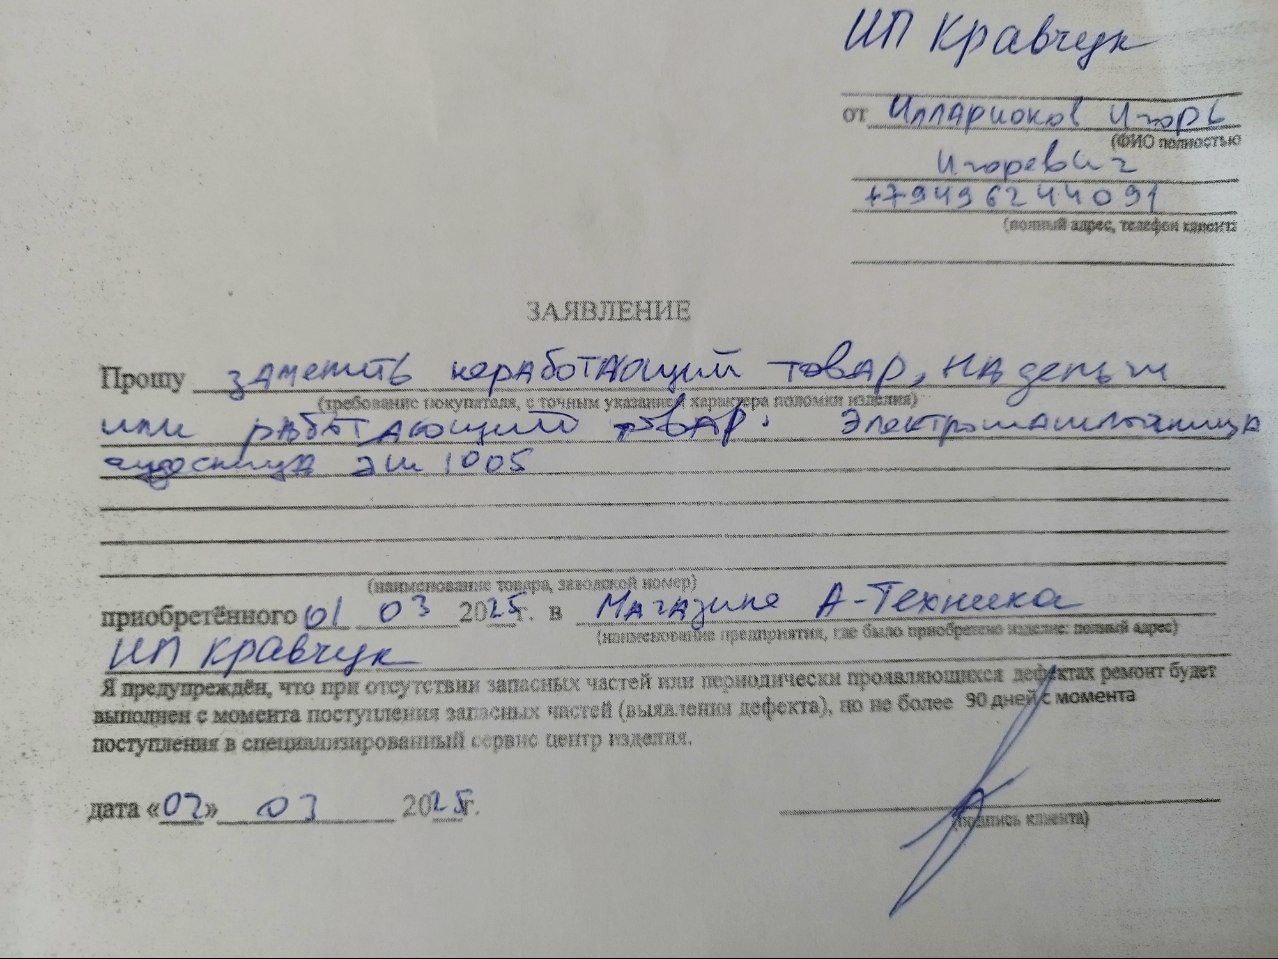 ИП Кравчук
от Илларионов Игорь
(ФИО полностью
Игоревич
+79496244091
(полный адрес, телефон клиента
ЗАЯВЛЕНИЕ
Прошу заменить неработающий товар, на деньги
(требование покупателя, с точным указанием характера поломки изделия)
или работающий товар. Электрошашлычница
чудесница эш 1005
(наименование товара, заводской номер)
приобретённого 01 03 2025г. в Магазине А-Техника
(наименование предприятия, где было приобретено изделие: полный адрес)
ИП Кравчук
Я предупреждён, что при отсутствии запасных частей или периодически проявляющихся дефектах ремонт будет
выполнен с момента поступления запасных частей (выявления дефекта), но не более 90 дней с момента
поступления в специализированный сервис центр изделия.
дата «02» 03 2025г.
(подпись клиента)